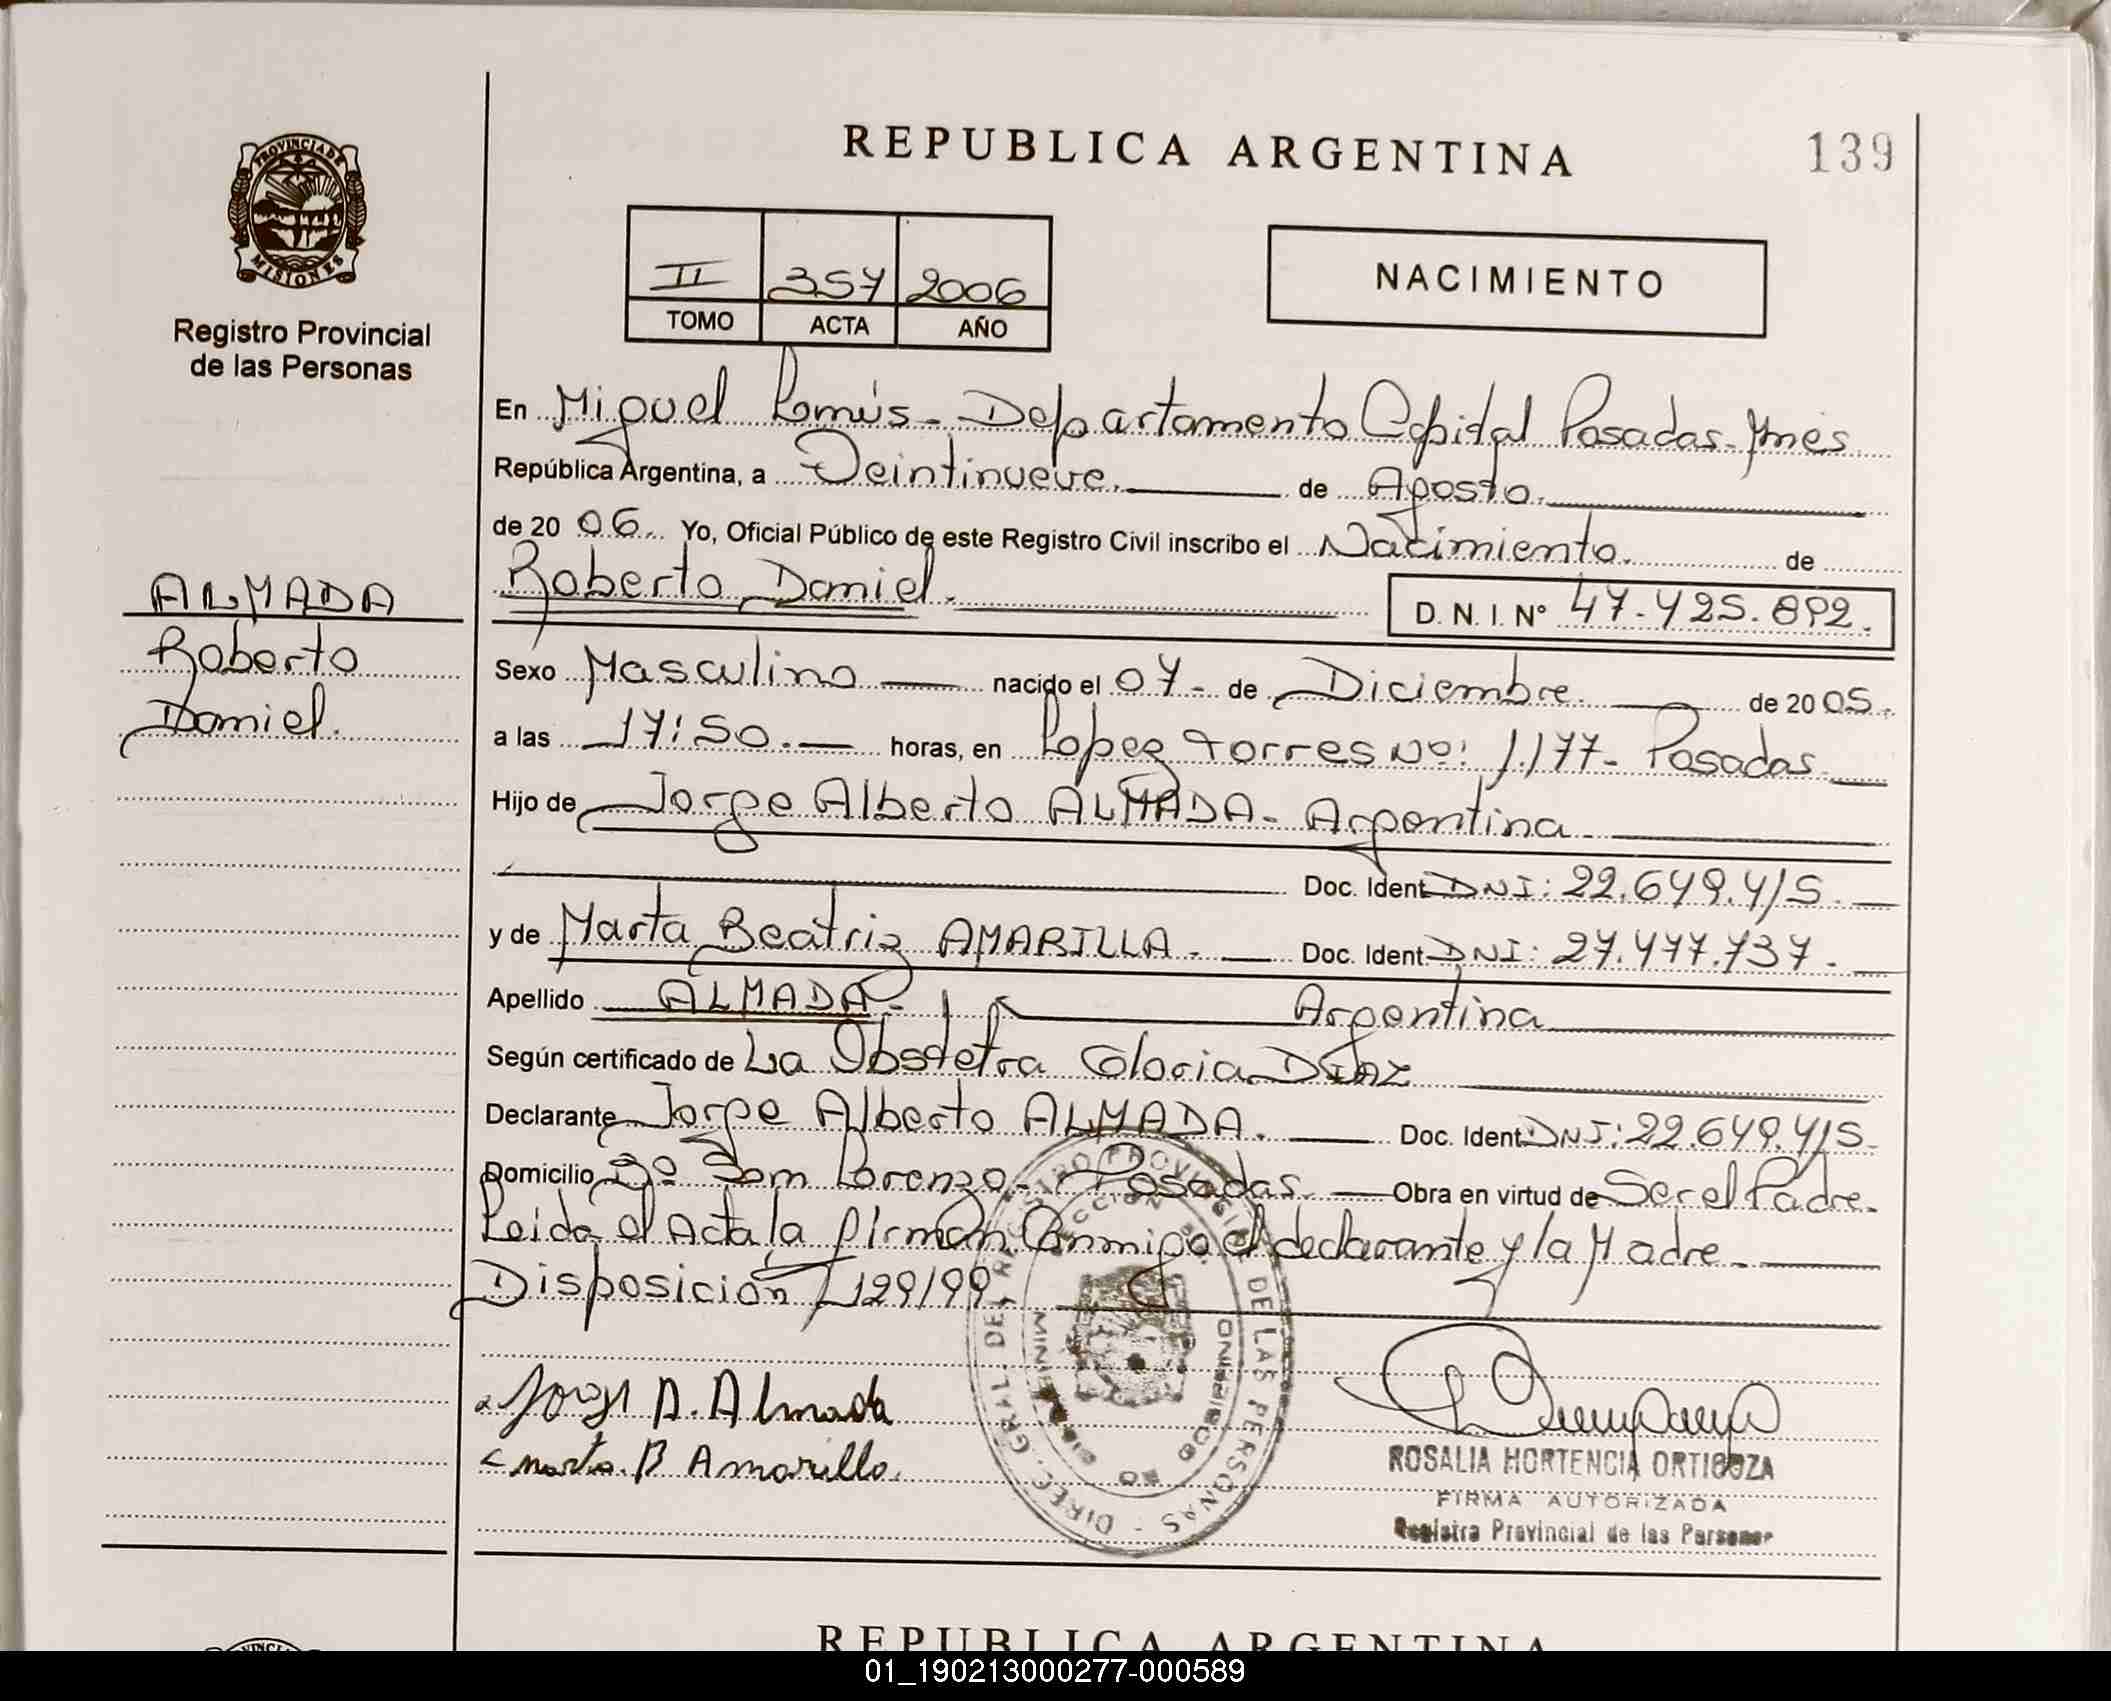 REPUBLICA ARGENTINA
139
PROVINCIA DE
MISIONES
Registro Provincial
de las Personas
II 357 2006
TOMO ACTA AÑO
NACIMIENTO
En Miguel Lanús - Departamento Capital Posadas - Mnes
República Argentina, a Veintinueve. de Agosto.
de 2006. Yo, Oficial Público de este Registro Civil inscribo el Nacimiento. de
Roberto Daniel.
D. N. I. N° 47.425.892.
ALMADA
Roberto
Daniel.
Sexo Masculino nacido el 07 - de Diciembre. de 2005.
a las 17:50. horas, en Lopez Torres No: 1.177 - Posadas
Hijo de Jorge Alberto ALMADA - Argentina
Doc. Ident DNI: 22.649.415.
y de Marta Beatriz AMARILLA. Doc. Ident DNI: 27.477.737.
Apellido ALMADA - Argentina
Según certificado de La Obstetra Gloria DIAZ
Declarante Jorge Alberto ALMADA. Doc. Ident DNI: 22.649.415.
Domicilio Bº San Lorenzo - Posadas. Obra en virtud de Ser el Padre.
Leida el Acta, la firman Conmigo el declarante y la Madre.
Disposición 129/99.
Jorge A. Almada
Marta. B Amarilla.
DIREC. GRAL. DEL REGISTRO PROVINCIAL DE LAS PERSONAS
ROSALIA HORTENCIA ORTIGOZA
FIRMA AUTORIZADA
Registro Provincial de las Personas
REPUBLICA ARGENTINA
01_190213000277-000589